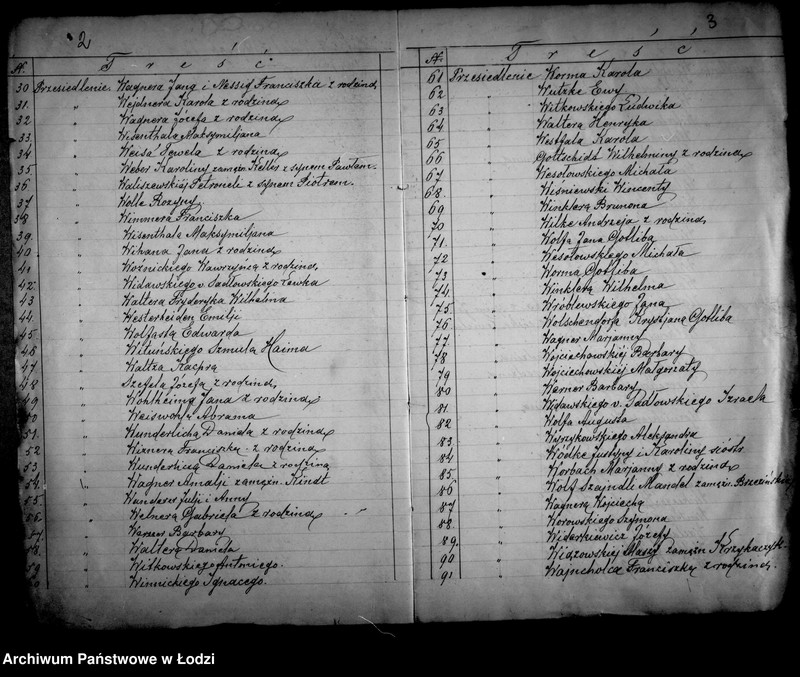 2
№ Treść
30 Przesiedlenie Wagnera Jana i Nessig Franciszka z rodziną
31. " Wejdnera Karola z rodziną
32 " Wagnera Józefa z rodziną
33. " Wisenthala Maksymiljana
34 " Weisa z rodziną
35. " Weber Karoliny zamężn. Keller z synem Pawłem.
36. " Waliszewskiej Petroneli z synem Piotrem.
37 " Wolle Rozyny
38 " Wimmera Franciszka
39 " Wisenthala Maksymiljana
40 " Wihana Jana z rodziną
41 " Woźnickiego Wawrzyńca z rodziną
42 " Widawskiego v. Sadłowskiego Lewka
43 " Waltera Fryderyka Wilhelma
44. " Westerheiden Emilji
45 " Wolfasta Edwarda
46 " Wiluńskiego Szmula Haima
47 " Waltza Kacpra
48 " Józefa z rodziną
49 " Wohlheima Jana z rodziną
50 " Weiswola Abrama
51. " Wunderlicha Daniela z rodziną
52 " Wixnera Franciszka z rodziną
53. " Wunderlicha Daniela z rodziną
54. " Wagner Amalji zamężn. Kindt
55. " Wunderer Julji i Anny
56. " Welnera Gabriela z rodziną
57. " Warner Barbary
58. " Waltera Daniela
59 " Witkowskiego Antoniego.
60 " Winnickiego Ignacego.
3
№ Treść
61 Przesiedlenie Worma Karola
62 " Wutzke Ewy
63 " Witkowskiego Ludwika
64 " Waltera Henryka
65 " Westfala Karola
66 " Gottschids Wilhelminy z rodziną
67 " Wesołowskiego Michała
68 " Wiśniewski Wincenty
69 " Winklera Brunona
70 " Wilke Andrzeja z rodziną
71. " Wolfa Jana Gotliba
72 " Wesołowskiego Michała
73 " Worma Gotliba
74. " Winklera Wilhelma
75. " Wróblewskiego Jana
76 " Wolschendorfa Krystjana Gotliba
77 " Wagner Marjanny
78 " Wojciechowskiej Barbary
79 " Wojciechowskiej Małgorzaty
80 " Werner Barbary
81. " Widawskiego v. Padłowskiego Izraela
82 " Wolfa Augusta
83. " Wyszykowskiego Aleksandra
84 " Wodke Justyny i Karoliny sióstr
85 " Worbach Marjanny z rodziną
86 " Wolf Szajndli Mandel zamężn. Brzezińskiej
87 " Wagnera Wojciecha
88. " Worowskiego Szymona
89. " Widarkiewicz Józefy
90 " Widzowskiej Maszy zamężn. Krzykaczyk
91 " Wajncholca Franciszka z rodziną.
Archiwum Państwowe w Łodzi